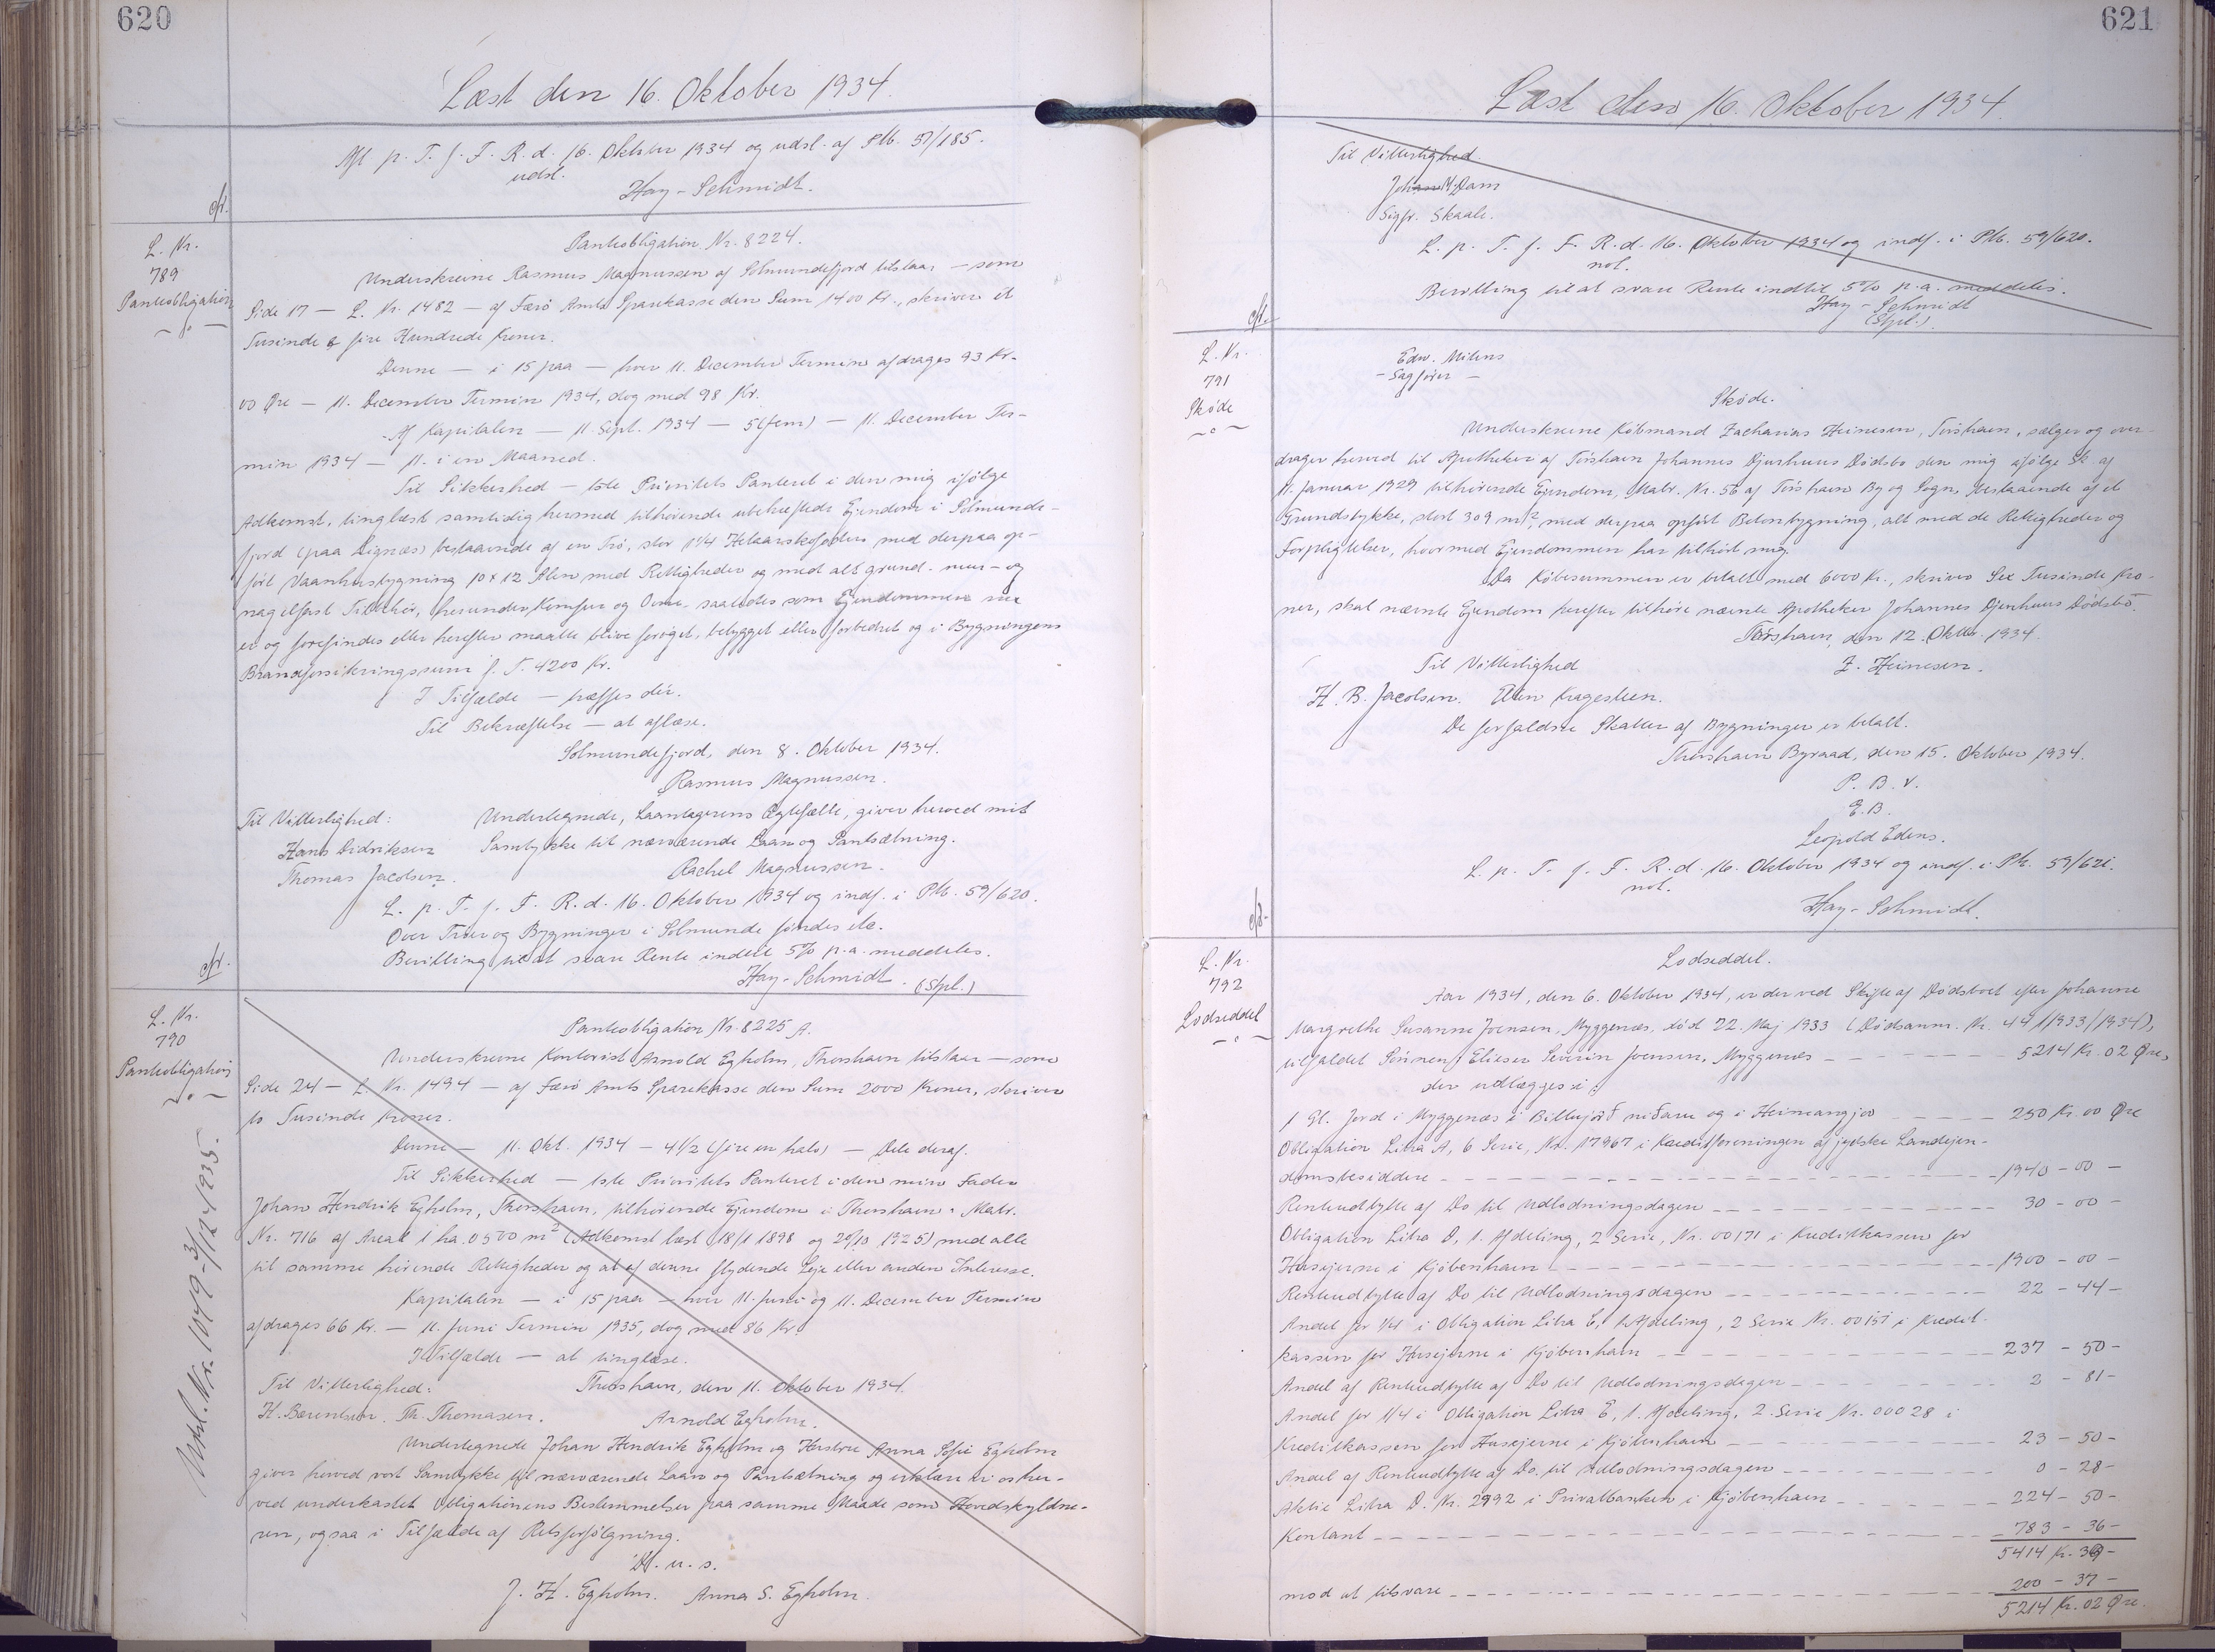 620
Læst den 16. Oktober 1934.
Afl p. T. f. F. R. d. 16. Oktober 1934 og udsl. af Ptb. 57/185.
udsl.
Hay-Schmidt.
cfr.
L. Nr.
789
Panteobligation
Panteobligation Nr. 8224.
Underskrevne Rasmus Magnussen af Solmundefjord tilstaar — som
Side 17 — L. Nr. 1482 — af Færø Amts Sparekasse den Sum 1400 Kr., skriver et
Tusinde & fire Hundrede Kroner.
Denne — i 15 paa — hver 11. December Termin afdrages 93 Kr.
00 Øre — 11. December Termin 1934, dog med 98 Kr.
Af Kapitalen — 11. Sept. 1934 — 5 (fem) — 11. December Ter-
min 1934 — 11. i en Maaned.
Til Sikkerhed — 1ste Prioritets Panteret i den mig ifølge
Adkomst, tinglæst samtidig hermed tilhørende ubehæftede Ejendom i Solmunde-
fjord (paa Lignæs) bestaaende af en Trø, stor 1 1/4 Helaarskofoder med derpaa op-
ført Vaanhusbygning 10 x 12 Alen med Rettigheder og med alt grund- mur- og
nagelfast Tilbehør, herunder Komfur og Ovne, saaledes som Ejendommen nu
er og forefindes eller herefter maatte blive forøget, bebygget eller forbedret og i Bygningens
Brandforsikringssum f. T. 4200 Kr.
I Tilfælde — træffes dér.
Til Bekræftelse — at aflæse.
Solmundefjord, den 8. Oktober 1934.
Rasmus Magnussen.
Til Vitterlighed: Undertegnede, Laantagerens Ægtefælle, giver herved mit
Hans Didriksen Samtykke til nærværende Laan og Pantsætning.
Thomas Jacobsen. Rachel Magnussen.
L. p. T. f. F. R. d. 16. Oktober 1934 og indf. i Ptb. 59/620.
Over Trøer og Bygninger i Solmunde føndes etc.
Bevilling til at svare Rente indtil 5% p.a. meddeles.
Hay-Schmidt. (Stpl.)
cfr.
L. Nr.
790
Panteobligation
Udsl. Nr. 1049 - 3/12 4 1935.
Panteobligation Nr. 8225 A.
Underskrevne Kontorist Arnold Egholm, Thorshavn tilstaar — som
Side 24 — L. Nr. 1494 — af Færø Amts Sparekasse den Sum 2000 Kroner, skriver
to Tusinde Kroner.
Denne — 11. Okt. 1934 — 4 1/2 (fire en halv) — Dele deraf.
Til Sikkerhed — 1ste Prioritets Panteret i den min Fader
Johan Hendrik Egholm, Thorshavn, tilhørende Ejendom i Thorshavn: Matr.
Nr. 716 af Areal 1 ha. 0500 m² (Adkomst læst 18/1 1898 og 20/10 1925) med alle
til samme hørende Rettigheder og al af denne flydende Leje eller anden Interesse.
Kapitalen — i 15 paa — hver 11. Juni og 11. December Termin
afdrages 66 Kr. — 11. Juni Termin 1935, dog med 86 Kr.
I Tilfælde — at tinglæse.
Til Vitterlighed: Thorshavn, den 11. Oktober 1934.
H. Berentsen. Th. Thomasen. Arnold Egholm.
Undertegnede Johan Hendrik Egholm og Hustru Anna Sofie Egholm
giver herved vort Samtykke til nærværende Laan og Pantsætning og erklærer vi os her-
ved underkastet Obligationens Bestemmelser paa samme Maade som Hovedskyldne-
ren, ogsaa i Tilfælde af Retsforfølgning.
D. u. s.
J. H. Egholm. Anna S. Egholm.
621
Læst den 16. Oktober 1934.
Til Vitterlighed.
Johan M. Dam
Sigfr. Skaale.
L. p. T. f. F. R. d. 16. Oktober 1934 og indf. i Ptb. 59/620.
not.
Bevilling til at svare Rente indtil 5% p.a. meddeles.
Hay-Schmidt
(Stpl.)
cfr.
L. Nr.
791
Skøde
Edw. Mitens
- Sagfører -
Skøde.
Underskrevne Købmand Zacharias Heinesen, Tórshavn, sælger og over-
drager herved til Apotheker af Tórshavn Johannes Djurhuus Dødsbo den mig ifølge Sk. af
11. Januar 1929 tilhørende Ejendom, Matr. Nr. 56 af Tórshavn By og Sogn, bestaaende af et
Grundstykke, stort 309 m², med derpaa opført Betonbygning, alt med de Rettigheder og
Forpligtelser, hvormed Ejendommen har tilhørt mig.
Da Købesummen er betalt med 6000 Kr., skriver Sex Tusinde Kro-
ner, skal nævnte Ejendom herefter tilhøre nævnte Apotheker Johannes Djurhuus Dødsbo.
Tórshavn, den 12. Oktbr. 1934.
Til Vitterlighed Z. Heinesen.
H. B. Jacobsen. Elin Kragesteen.
De forfaldne Skatter af Bygninger er betalt.
Thorshavn Byraad, den 15. Oktober 1934.
P. B. V.
E.B.
Leopold Edens.
L. p. T. f. F. R. d. 16. Oktober 1934 og indf. i Ptb. 59/621.
not.
Hay-Schmidt.
cfr.
L. Nr.
792
Lodseddel
Lodseddel.
Aar 1934, den 6. Oktober 1934, er der ved Skifte af Dødsboet efter Johanne
Margrethe Susanne Joensen, Myggenæs, død 22. Maj 1933 (Dødsanm. Nr. 441/1933/1934),
tilfaldet Sønnen: Elieser Severin Joensen, Myggenæs - - - 5214 Kr. 02 Øre,
der udlægges i:
1 Gl. Jord i Myggenæs i Billujørð niðaru og i Heimangjov - - - 250 Kr. 00 Øre
Obligation Litra A, 6 Serie, Nr. 17967 i Kreditforeningen af jydske Landejen-
domsbesiddere - - - 1940 - 00 -
Renteudbytte af Do til Udlodningsdagen - - - 30 - 00 -
Obligation Litra D, 1. Afdeling, 2 Serie, Nr. 00171 i Kreditkassen for
Husejerne i Kjøbenhavn - - - 1900 - 00 -
Renteudbytte af Do til Udlodningsdagen - - - 22 - 44 -
Andel for 1/4 i Obligation Litra C, 1 Afdeling, 2 Serie Nr. 00151 i Kredit-
kassen for Husejerne i Kjøbenhavn - - - 237 - 50 -
Andel af Renteudbytte af Do til Udlodningsdagen - - - 2 - 81 -
Andel for 1/4 i Obligation Litra E, 1. Afdeling, 2. Serie Nr. 00028 i
Kreditkassen for Husejerne i Kjøbenhavn - - - 23 - 50 -
Andel af Renteudbytte af Do. til Udlodningsdagen - - - 0 - 28 -
Aktie Litra D. Nr. 2992 i Privatbanken i Kjøbenhavn - - - 224 - 50 -
Kontant - - - 783 - 36 -
5414 Kr. 39 -
mod at tilsvare - - - 200 - 37 -
5214 Kr. 02 Øre.